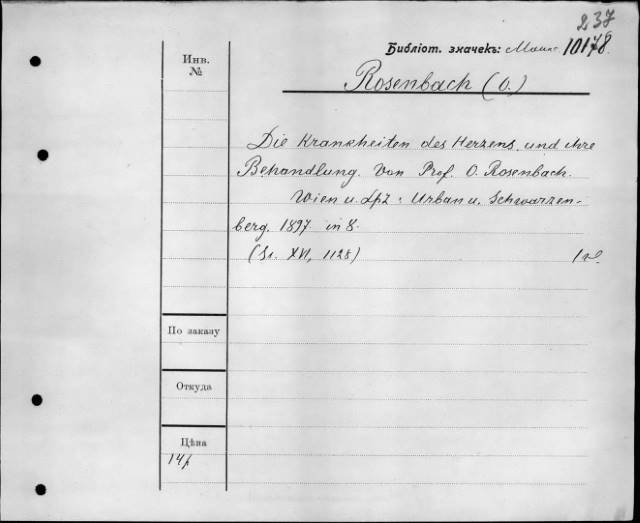 237
Библіот. значекъ: 10178
Инв.
№
Rosenbach (O.)
Die Krankheiten des Herzens und ihre
Behandlung. Von Prof. O. Rosenbach.
Wien u. Lpz: Urban u. Schwarzen-
berg. 1897 in 8.
(Sr. XVI, 1128)
По заказу
Откуда
Цѣна
14р